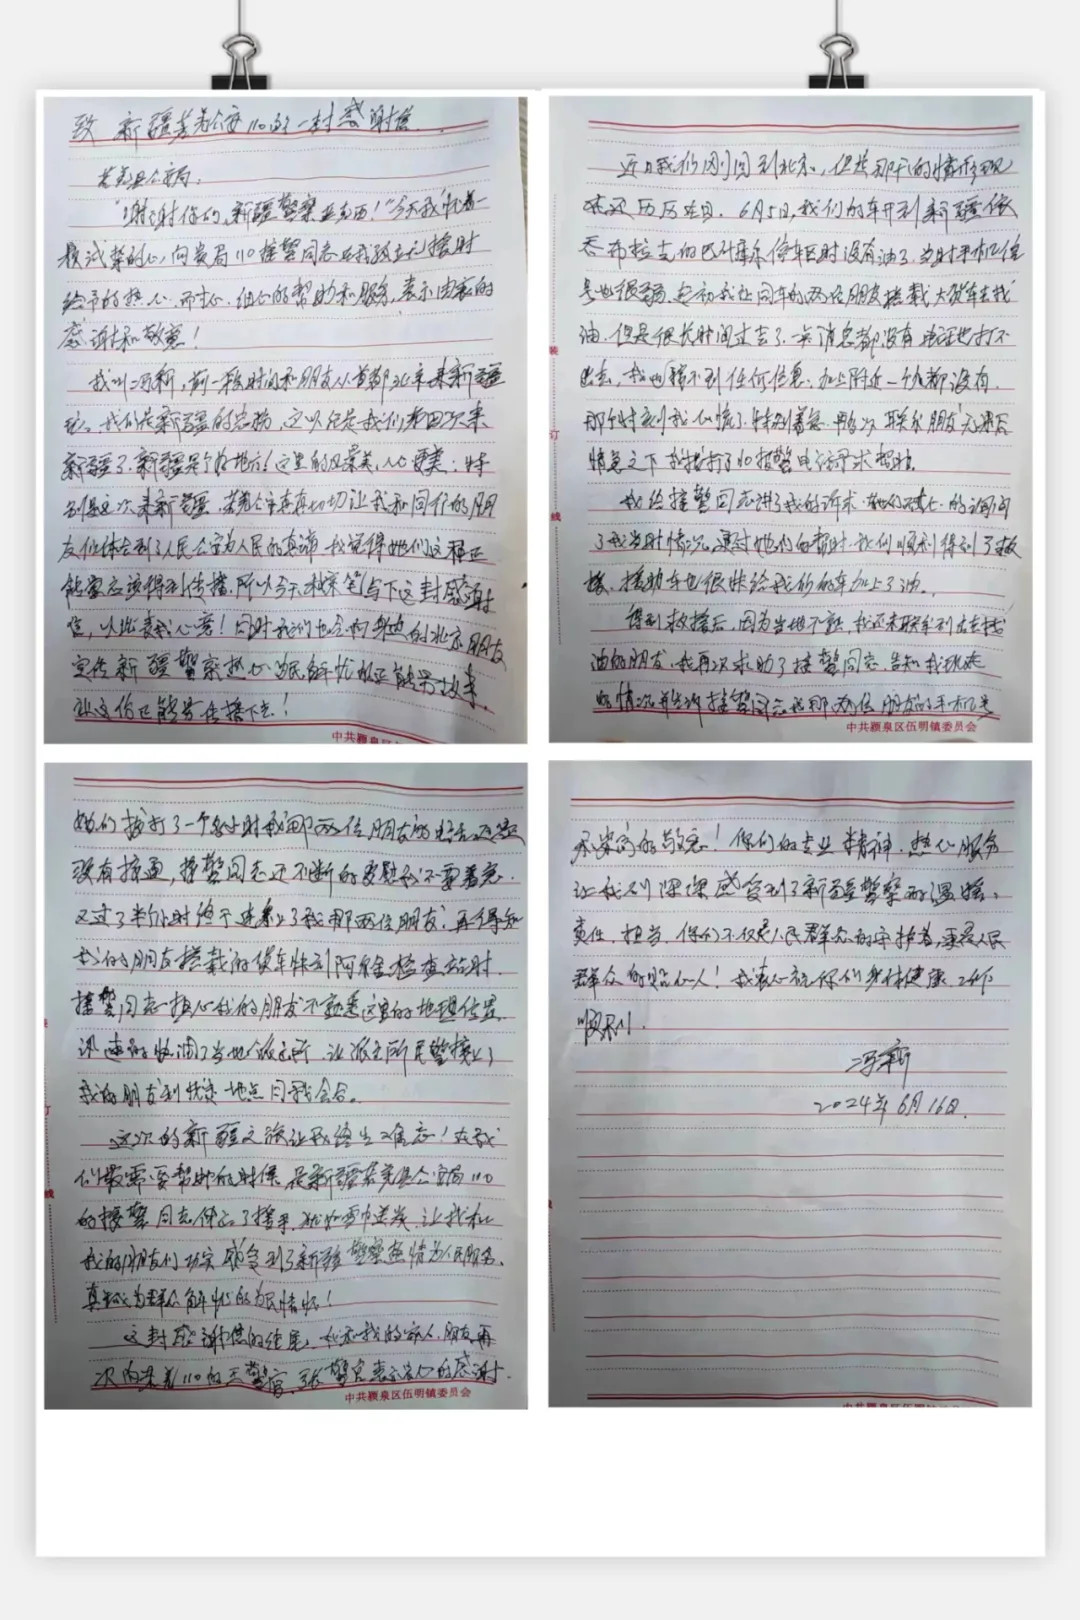 致 新疆若羌公安110的一封感谢信
若羌县公安局：
“谢谢你们，新疆警察亚克西！”今天我怀着一
颗诚挚的心，向贵局110接警同志在我孤立无援时
给予的热心、而耐心、细心的帮助和服务，表示由衷的
感谢和敬意！
我叫冯新，前一段时间和朋友从首都北京来新疆
玩。我们是新疆的，这次已是我们第四次来
新疆了，新疆是个好地方！这里的风景美，人心更美；特
别是这次来新疆，若羌公安的一切让我和同行的朋
友们体会到了人民公安为人民的真谛，我觉得她们这种正
能量应该得到传播，所以今天我执笔写下这封感谢
信，以此表我心意！同时我们也会向身边的北京朋友
宣传新疆警察热心为民解忧的正能量故事，
让这份正能量传播下去！
中共颍泉区伍明镇
近日我们刚回到北京，但是那天的情形现
在还历历在目。6月5日，我们的车开到新疆依
吞布拉克的巴什库尔停车区时没有油了，当时手机信
号也很弱，起初我让同车的两位朋友搭载大货车去找
油，但是很长时间过去了，一点消息都没有，电话也打不
出去，我也得不到任何信息，加上附近一个人都没有，
那个时刻我心慌了，特别着急，再多次联系朋友无果后
情急之下我拨打了110报警电话寻求帮助。
我给接警同志讲了我的诉求，她们耐心的询问
了我当时情况，通过她们的帮助，我们顺利得到了救
援，援助车也很快给我们的车加上了油。
得到救援后，因为当地不熟，我还未联系到去找
油的朋友，我再次求助了接警同志，告知我现在
的情况并告诉接警同志我那两位朋友的手机号
中共颍泉区伍明镇委员会
她们拨打了一个多小时我那两位朋友的电话，还是
没有接通，接警同志还不断的安慰我不要着急，
又过了半小时终于连系上了我那两位朋友，再得知
我的朋友搭载的货车快到阿尔金检查站时，
接警同志担心我的朋友不熟悉这里的地理位置，
迅速的协调了当地派出所，让派出所民警接上了
我的朋友到我这地点同我会合。
这次的新疆之旅让我终生难忘！在我
们最需要帮助的时候，是新疆若羌县公安局110
的接警同志伸出了援手，犹如雪中送炭，让我和
我的朋友们切实感受到了新疆警察热情为人民服务、
真诚为群众解忧的为民情怀！
这封感谢信的结尾，我和我的家人、朋友再
次向若羌110的王警官、张警官表示衷心的感谢
中共颍泉区伍明镇委员会
和崇高的敬意！你们的专业精神、热心服务
让我们深深感受到了新疆警察的温暖、
责任、担当，你们不仅是人民群众的守护者，更是人民
群众的贴心人！我衷心祝你们身体健康、工作
顺利。
冯新
2024年6月16日